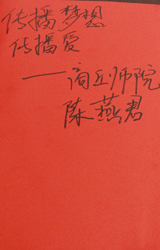 传播梦想
传播爱
——商丘师院
陈燕君